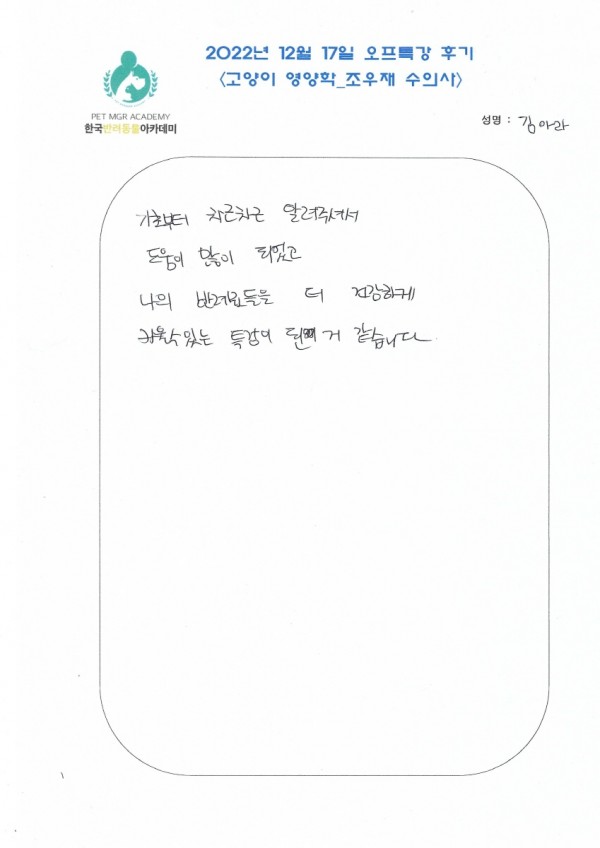 2022년 12월 17일 오프특강 후기
<고양이 영양학_조우재 수의사>
PET MGR ACADEMY
한국반려동물아카데미
성명 : 김아라
기초부터 차근차근 알려주셔서
도움이 많이 되었고
나의 반려묘들을 더 건강하게
키울수있는 특강이 된 거 같습니다.